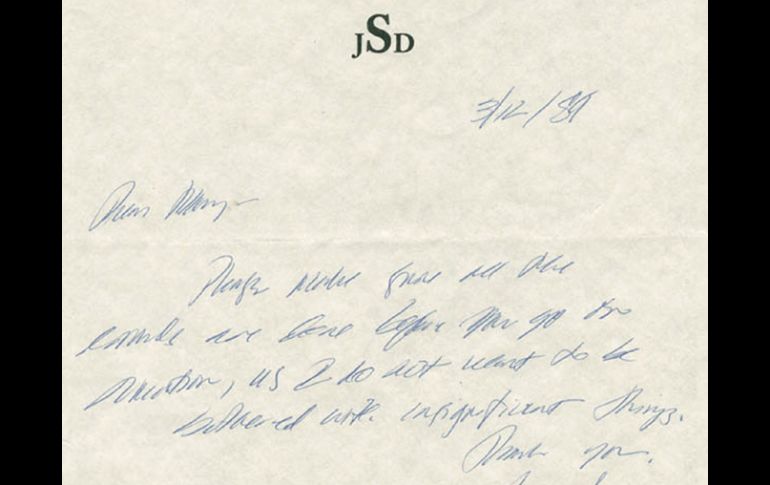 JSD
3/12/89
Dear
Please make sure all the
errands are done before you go on
vacation, as I do not want to be
bothered with insignificant things.
Thank you.